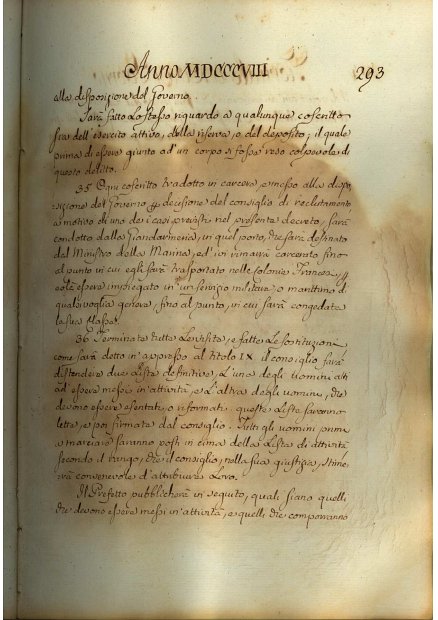 Anno MDCCCVIII 293
alla disposizione del Governo.
Sarà fatto lo stesso riguardo a qualunque coscritto
sia dell'esercito attivo, della riserva, o del deposito; il quale
prima di essere giunto ad un corpo si fosse reso colpevole di
questo delitto.
35 Ogni coscritto tradotto in carcere, e messo alla dispo-
sizione del Governo per decisione del consiglio di reclutamento
a motivo di uno dei casi previsti nel presente decreto, sarà
condotto dalla Giandarmeria, in quel porto, che sarà destinato
dal Ministro della Marina, ed ivi rimarrà carcerato fino
al punto in cui egli sarà trasportato nelle Colonie Francesi, per
colà essere impiegato in un servizio militare o marittimo di
qualsivoglia genere, fino al punto, in cui sarà congedata
la sua classe.
36 Terminate tutte le visite, e fatte le sostituzioni
come sarà detto in appresso al titolo IX il consiglio farà
distendere due liste definitive, l'una degli uomini atti
ad essere messi in attività, e l'altra degli uomini, che
devono essere esentati, o riformati. queste liste saranno
lette, e poi firmate dal consiglio. Tutti gli uomini primi
a marciare saranno posti in cima della lista di attività
secondo il rango, che il consiglio, nella sua giustizia, stime-
rà convenevole d'attribuire loro.
Il Prefetto pubblicherà in seguito, quali siano quelli
che devono essere messi in attività, e quelli che comporranno